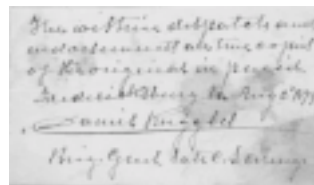 The within dispatch and
endorsement are true copies
of the original in pencil
Fredericksburg Va Aug
Daniel Ruggles
Brig. Genl late C.S. Army